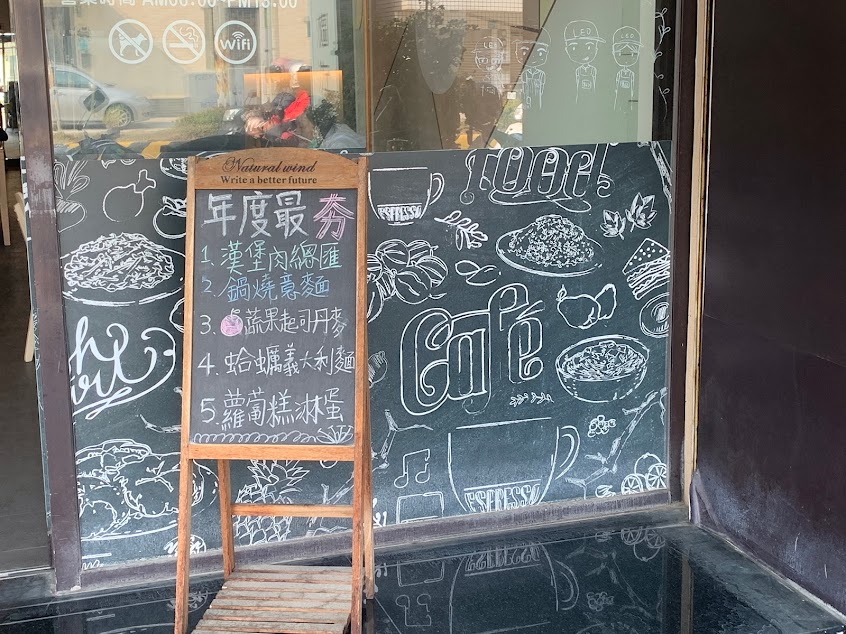 營業時間 AM06:00~PM13:00
WiFi
LEO
LEO
LEO
LEO
Natural wind
Write a better future
年度最夯
1. 漢堡肉總匯
2. 鍋燒意麵
3. 蔬果起司丹麥
4. 蛤蠣義大利麵
5. 蘿蔔糕淋蛋
FOOD!
ESPRESSO
Café
ESPRESSO